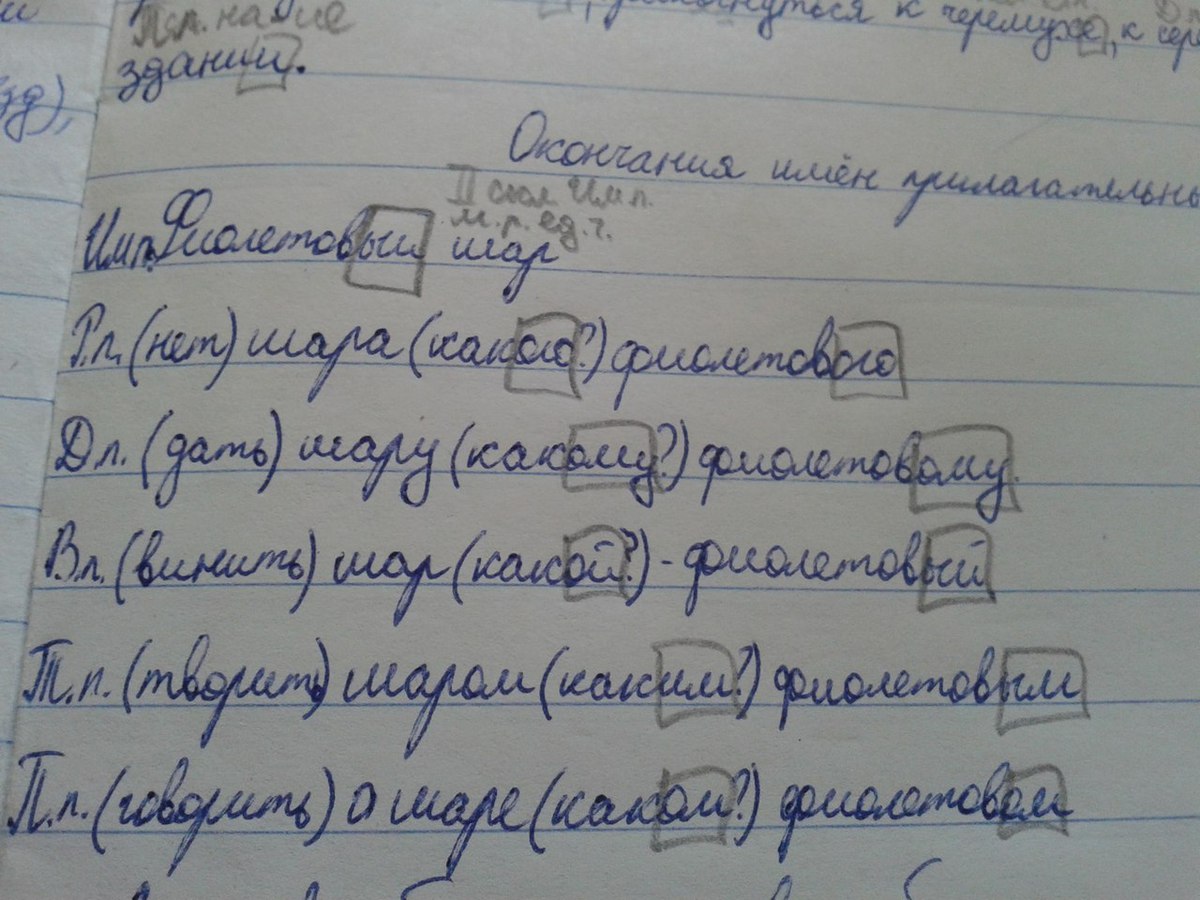 П.п. на
к черемухе, к
зд),
зданий.
Окончания имён прилагательны
II скл. И.п.
м.р. ед.ч.
И.п. Фиолетовый шар
Р.п. (нет) шара (какого?) фиолетового
Д.п. (дать) шару (какому?) фиолетовому
В.п. (винить) шар (какой?) - фиолетовый
Т.п. (творить) шаром (каким?) фиолетовым
П.п. (говорить) о шаре (каком?) фиолетовом